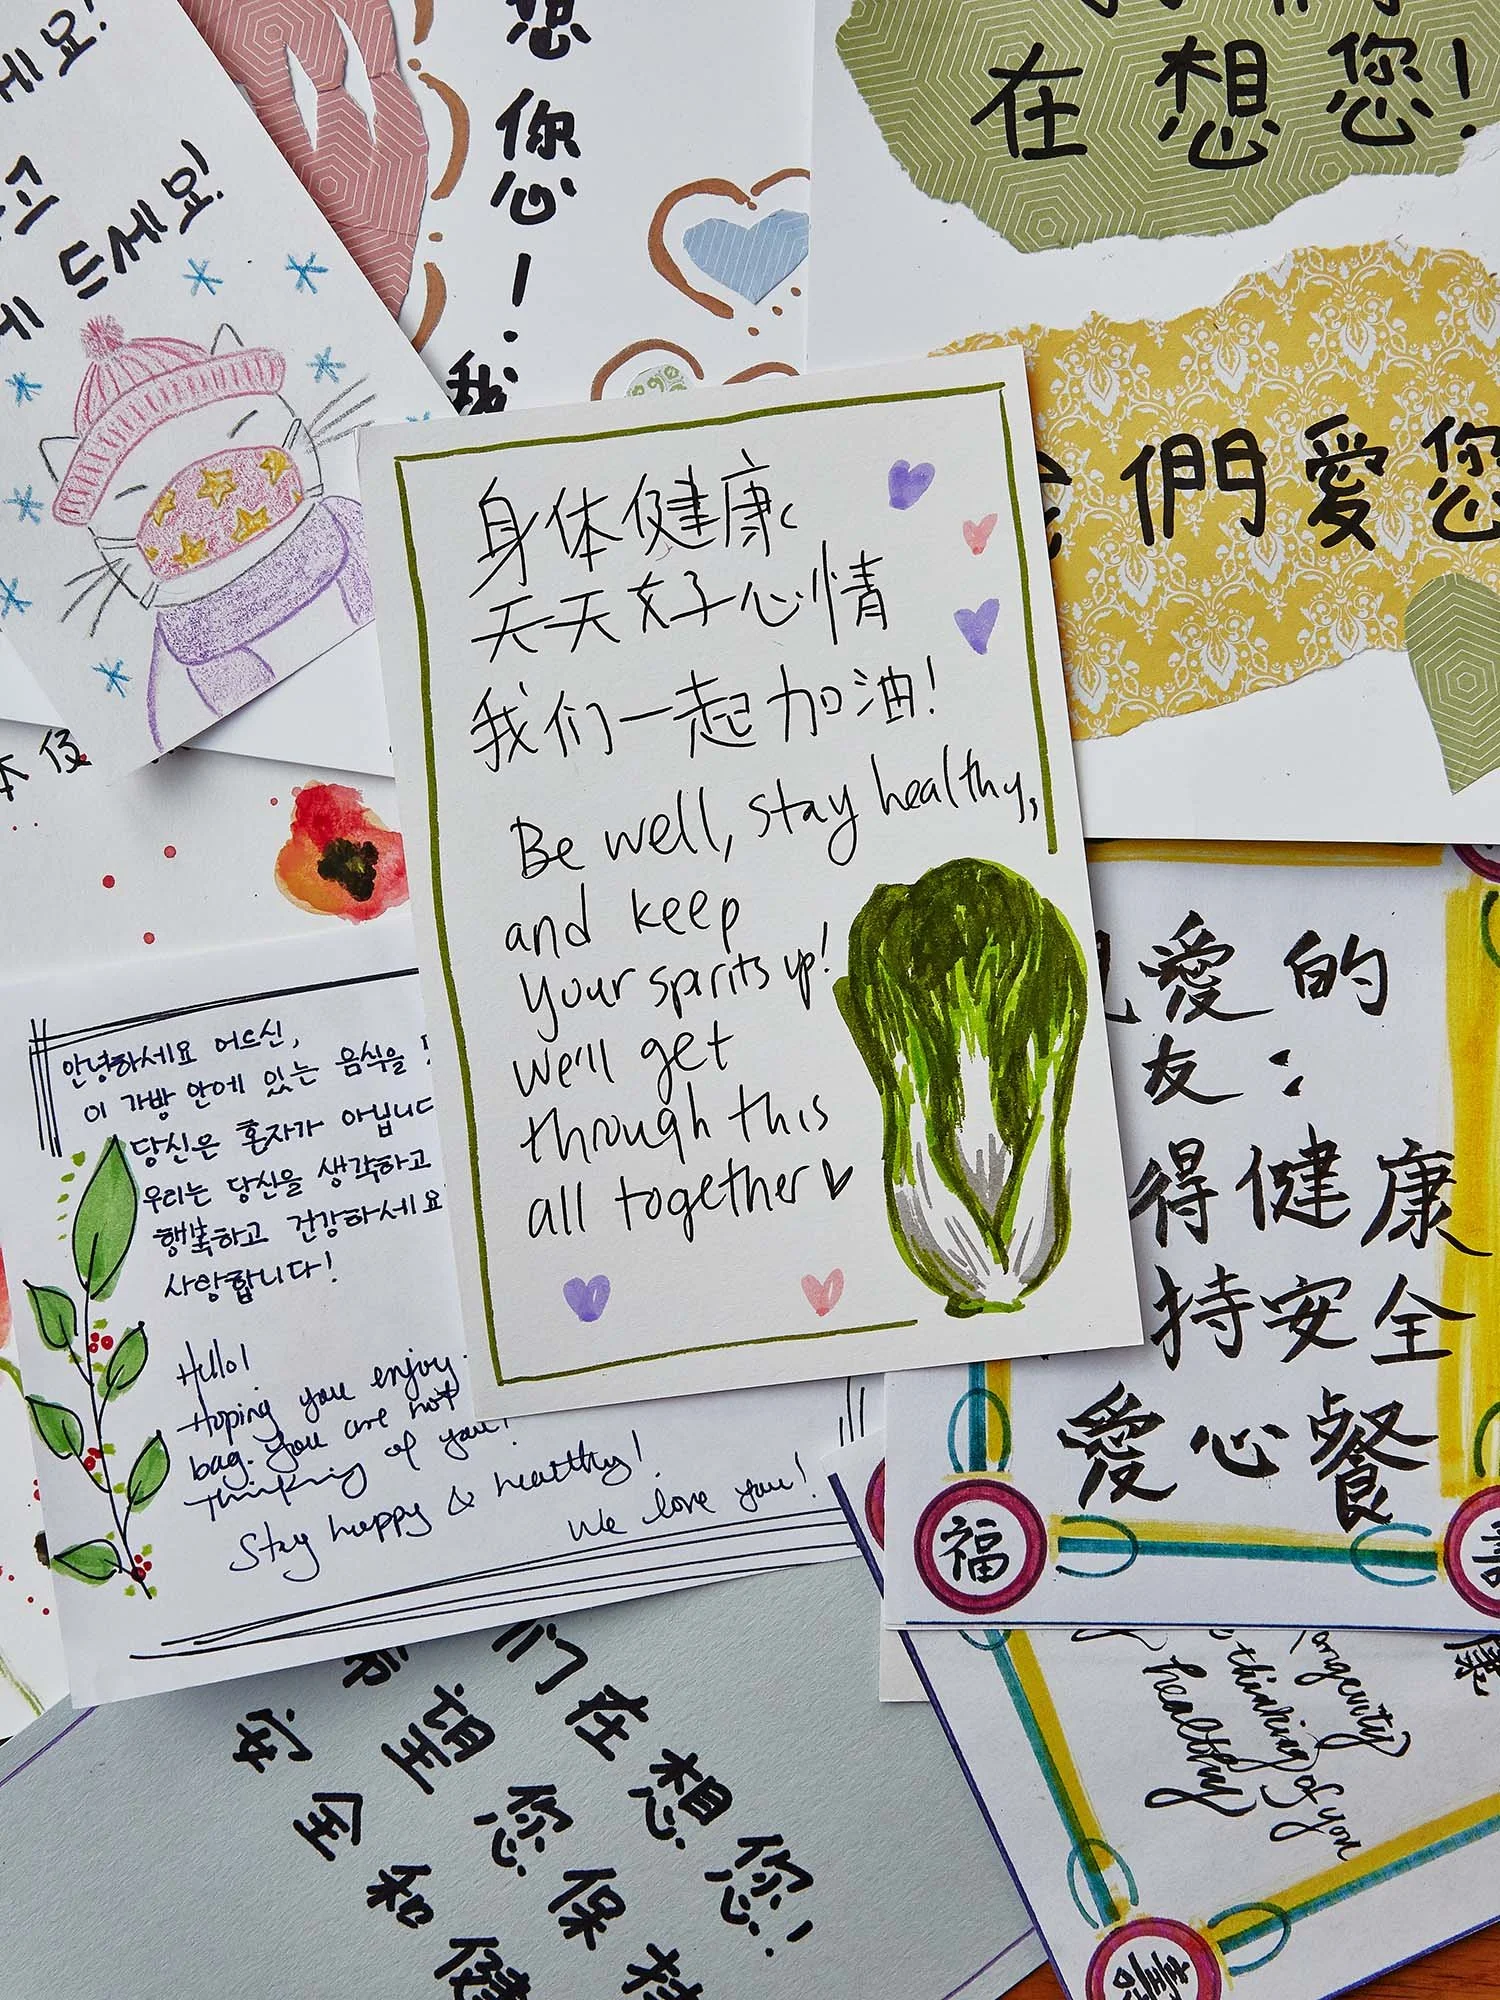 세요!
드세요!
想
您!
我
在想您!
們愛您
身体健康、
天天好心情
我们一起加油!
Be well, stay healthy,
and keep
your spirits up!
we'll get
through this
all together
안녕하세요 어르신,
이 가방 안에 있는 음식을
당신은 혼자가 아닙니다
우리는 당신을 생각하고
행복하고 건강하세요
사랑합니다!
Hello!
Hoping you enjoy
bag. you are not
thinking of you!
Stay happy & healthy!
We love you!
愛的
友:
得健康
持安全
愛心餐
福
longevity
thinking of you
healthy
康
壽
们在想您!
希望您保持
安全和健